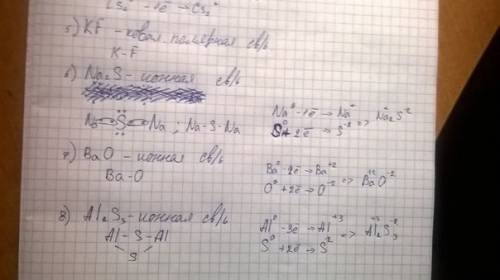 Cs₂⁰ -1ē → Cs₂⁺
5) KF - ковал полярная св/ь
K-F
6) Na₂S - ионная св/ь
Na S Na ; Na-S-Na
Na⁰-1ē → Na⁺
S⁰+2ē → S⁻² => Na₂⁺S⁻²
7) BaO - ионная св/ь
Ba-O
Ba⁰-2ē → Ba⁺²
O⁰+2ē → O⁻² => Ba⁺²O⁻²
8) Al₂S₃ - ионная св/ь
Al - S - Al
S
Al⁰-3ē → Al⁺³
S⁰+2ē → S⁻² => Al₂⁺³S₃⁻²